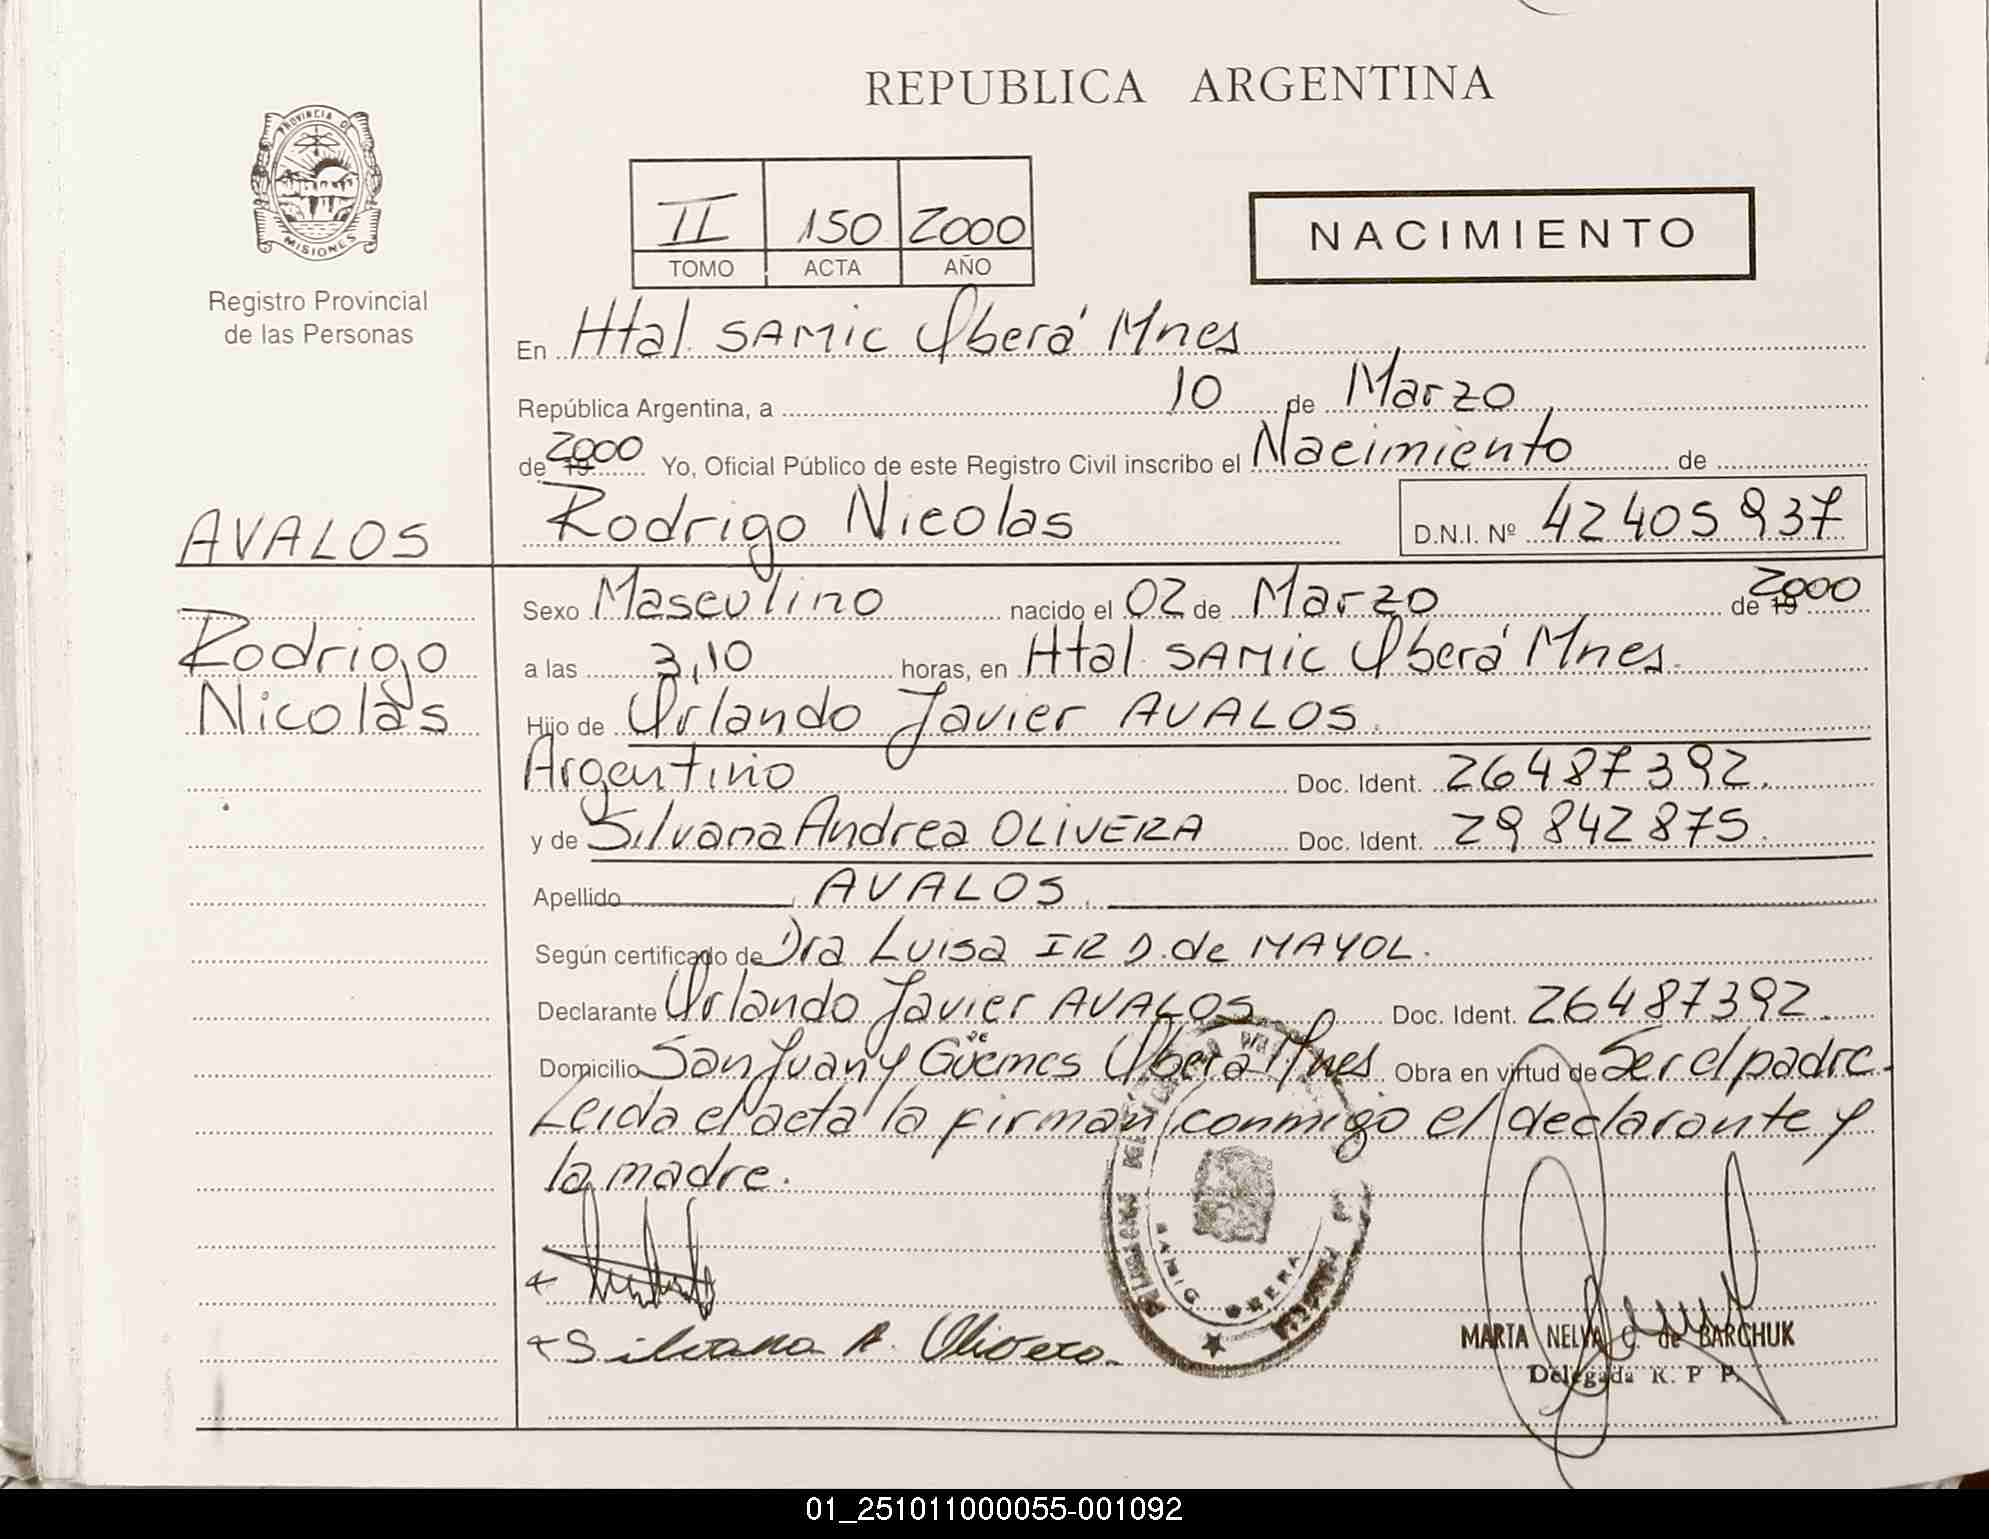 REPUBLICA ARGENTINA
PROVINCIA DE
MISIONES
Registro Provincial
de las Personas
II 150 2000
TOMO ACTA AÑO
NACIMIENTO
En Htal. SAMIC Oberá Mnes
República Argentina, a 10 de Marzo
de 19 2000 Yo, Oficial Público de este Registro Civil inscribo el Nacimiento de
AVALOS
Rodrigo Nicolas D.N.I. Nº 42405937
Rodrigo
Nicolás
Sexo Masculino nacido el 02 de Marzo de 19 2000
a las 3,10 horas, en Htal. SAMIC Oberá Mnes.
Hijo de Orlando Javier AVALOS.
Argentino Doc. Ident. 26487392.
y de Silvana Andrea OLIVERA Doc. Ident. 29842875.
Apellido AVALOS.
Según certificado de Dra Luisa IR D. de MAYOL.
Declarante Orlando Javier AVALOS Doc. Ident. 26487392.
Domicilio San Juan y Güemes Oberá Mnes Obra en virtud de Ser el padre.
de
Leida el acta la firman conmigo el declarante y
la madre.
SAMIC OBERA
Silvana A. Olivera.
MARTA NELVA C. de BARCHUK
Delegada R. P. P.
01_251011000055-001092